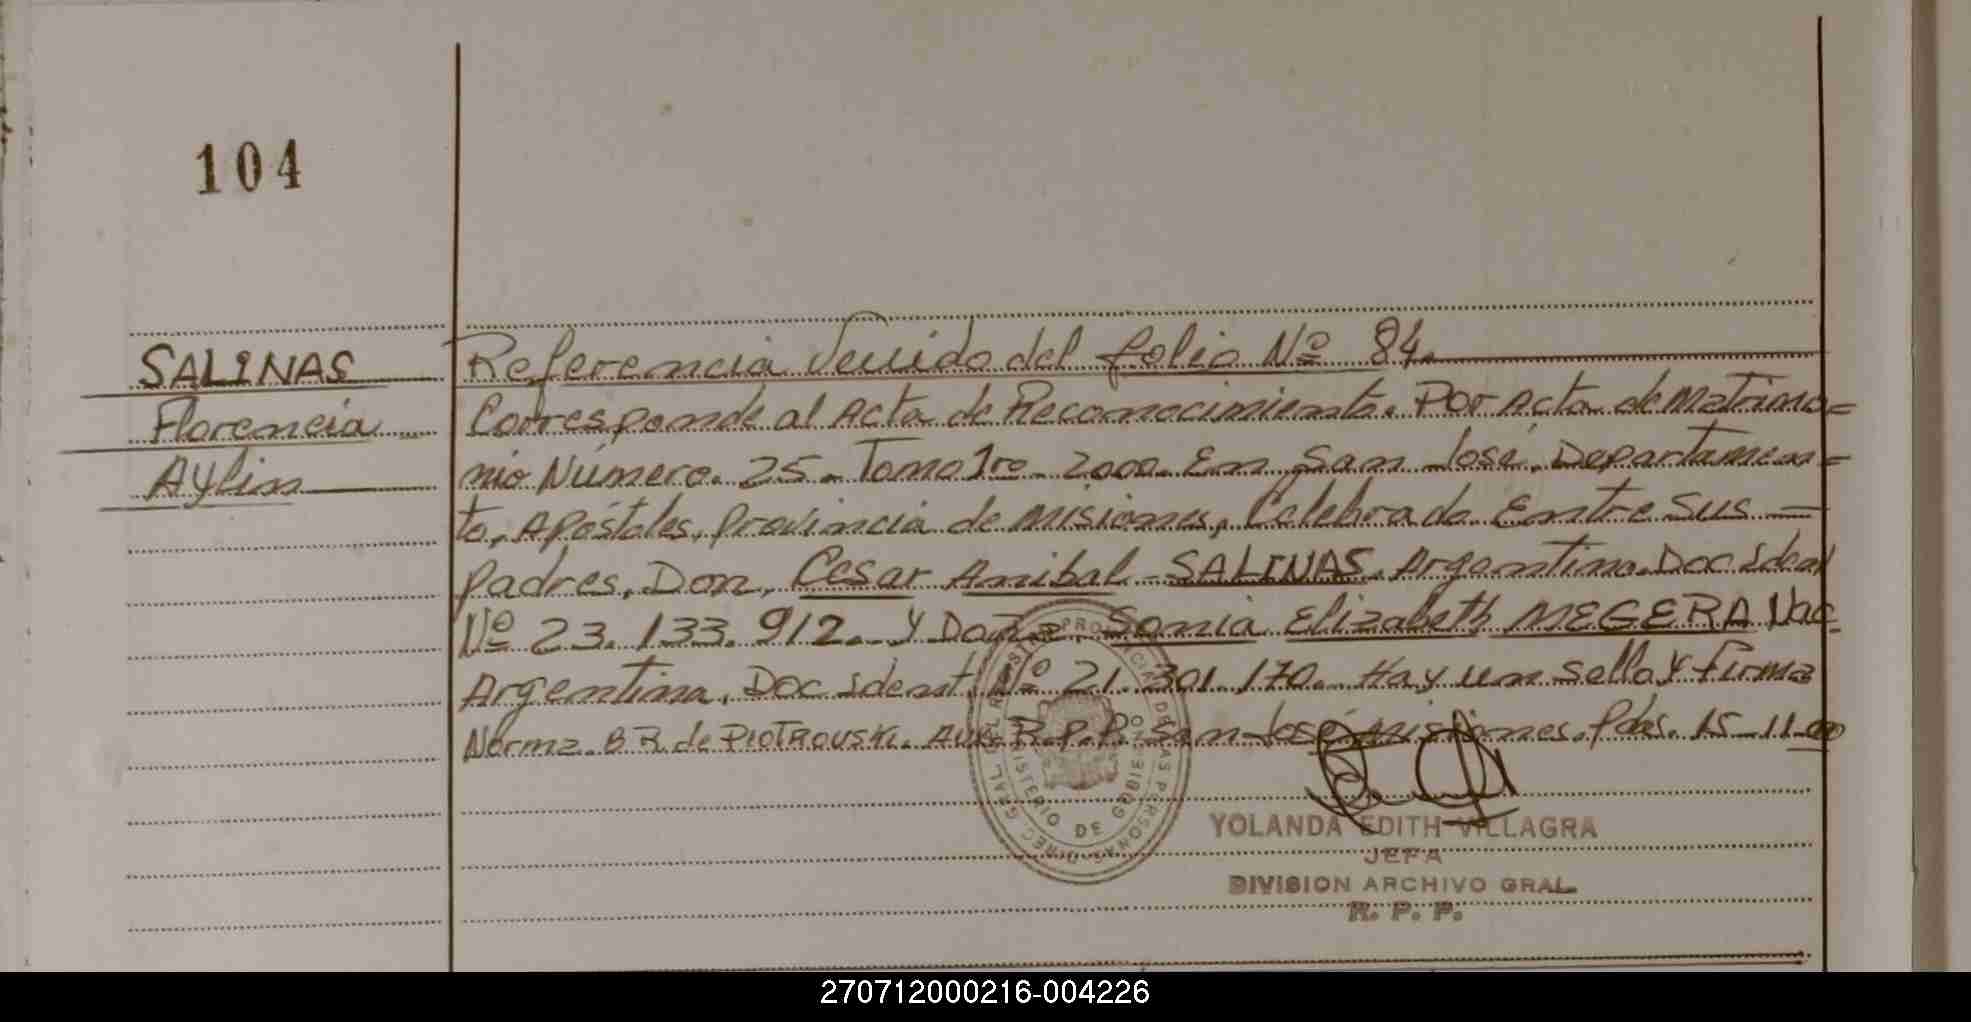 104
SALINAS
Florencia
Aylin
Referencia Venido del folio Nº 84.
Corresponde al Acta de Reconocimiento. Por Acta de Matrimo=
nio Número. 25. Tomo 1ro. 2000. En San José, Departamen=
to, Apóstoles, Provincia de Misiones, Celebrado Entre Sus —
padres, Don, Cesar Anibal SALINAS, Argentino. Doc ident
Nº 23.133.912. Y Doña, Sonia Elizabeth MEGERA Nac.
Argentina, Doc ident, Nº 21.301.170. Hay un sello y firma
Norma. B R de PIOTROUSKI. R.P.P. San José Misiones. Pdas. 15-11-00
YOLANDA EDITH VILLAGRA
JEFA
DIVISION ARCHIVO GRAL.
R. P. P.
PROVINCIAL DE LAS PERSONAS DIREC GRAL DEL REG
MINISTERIO DE GOBIERNO
270712000216-004226